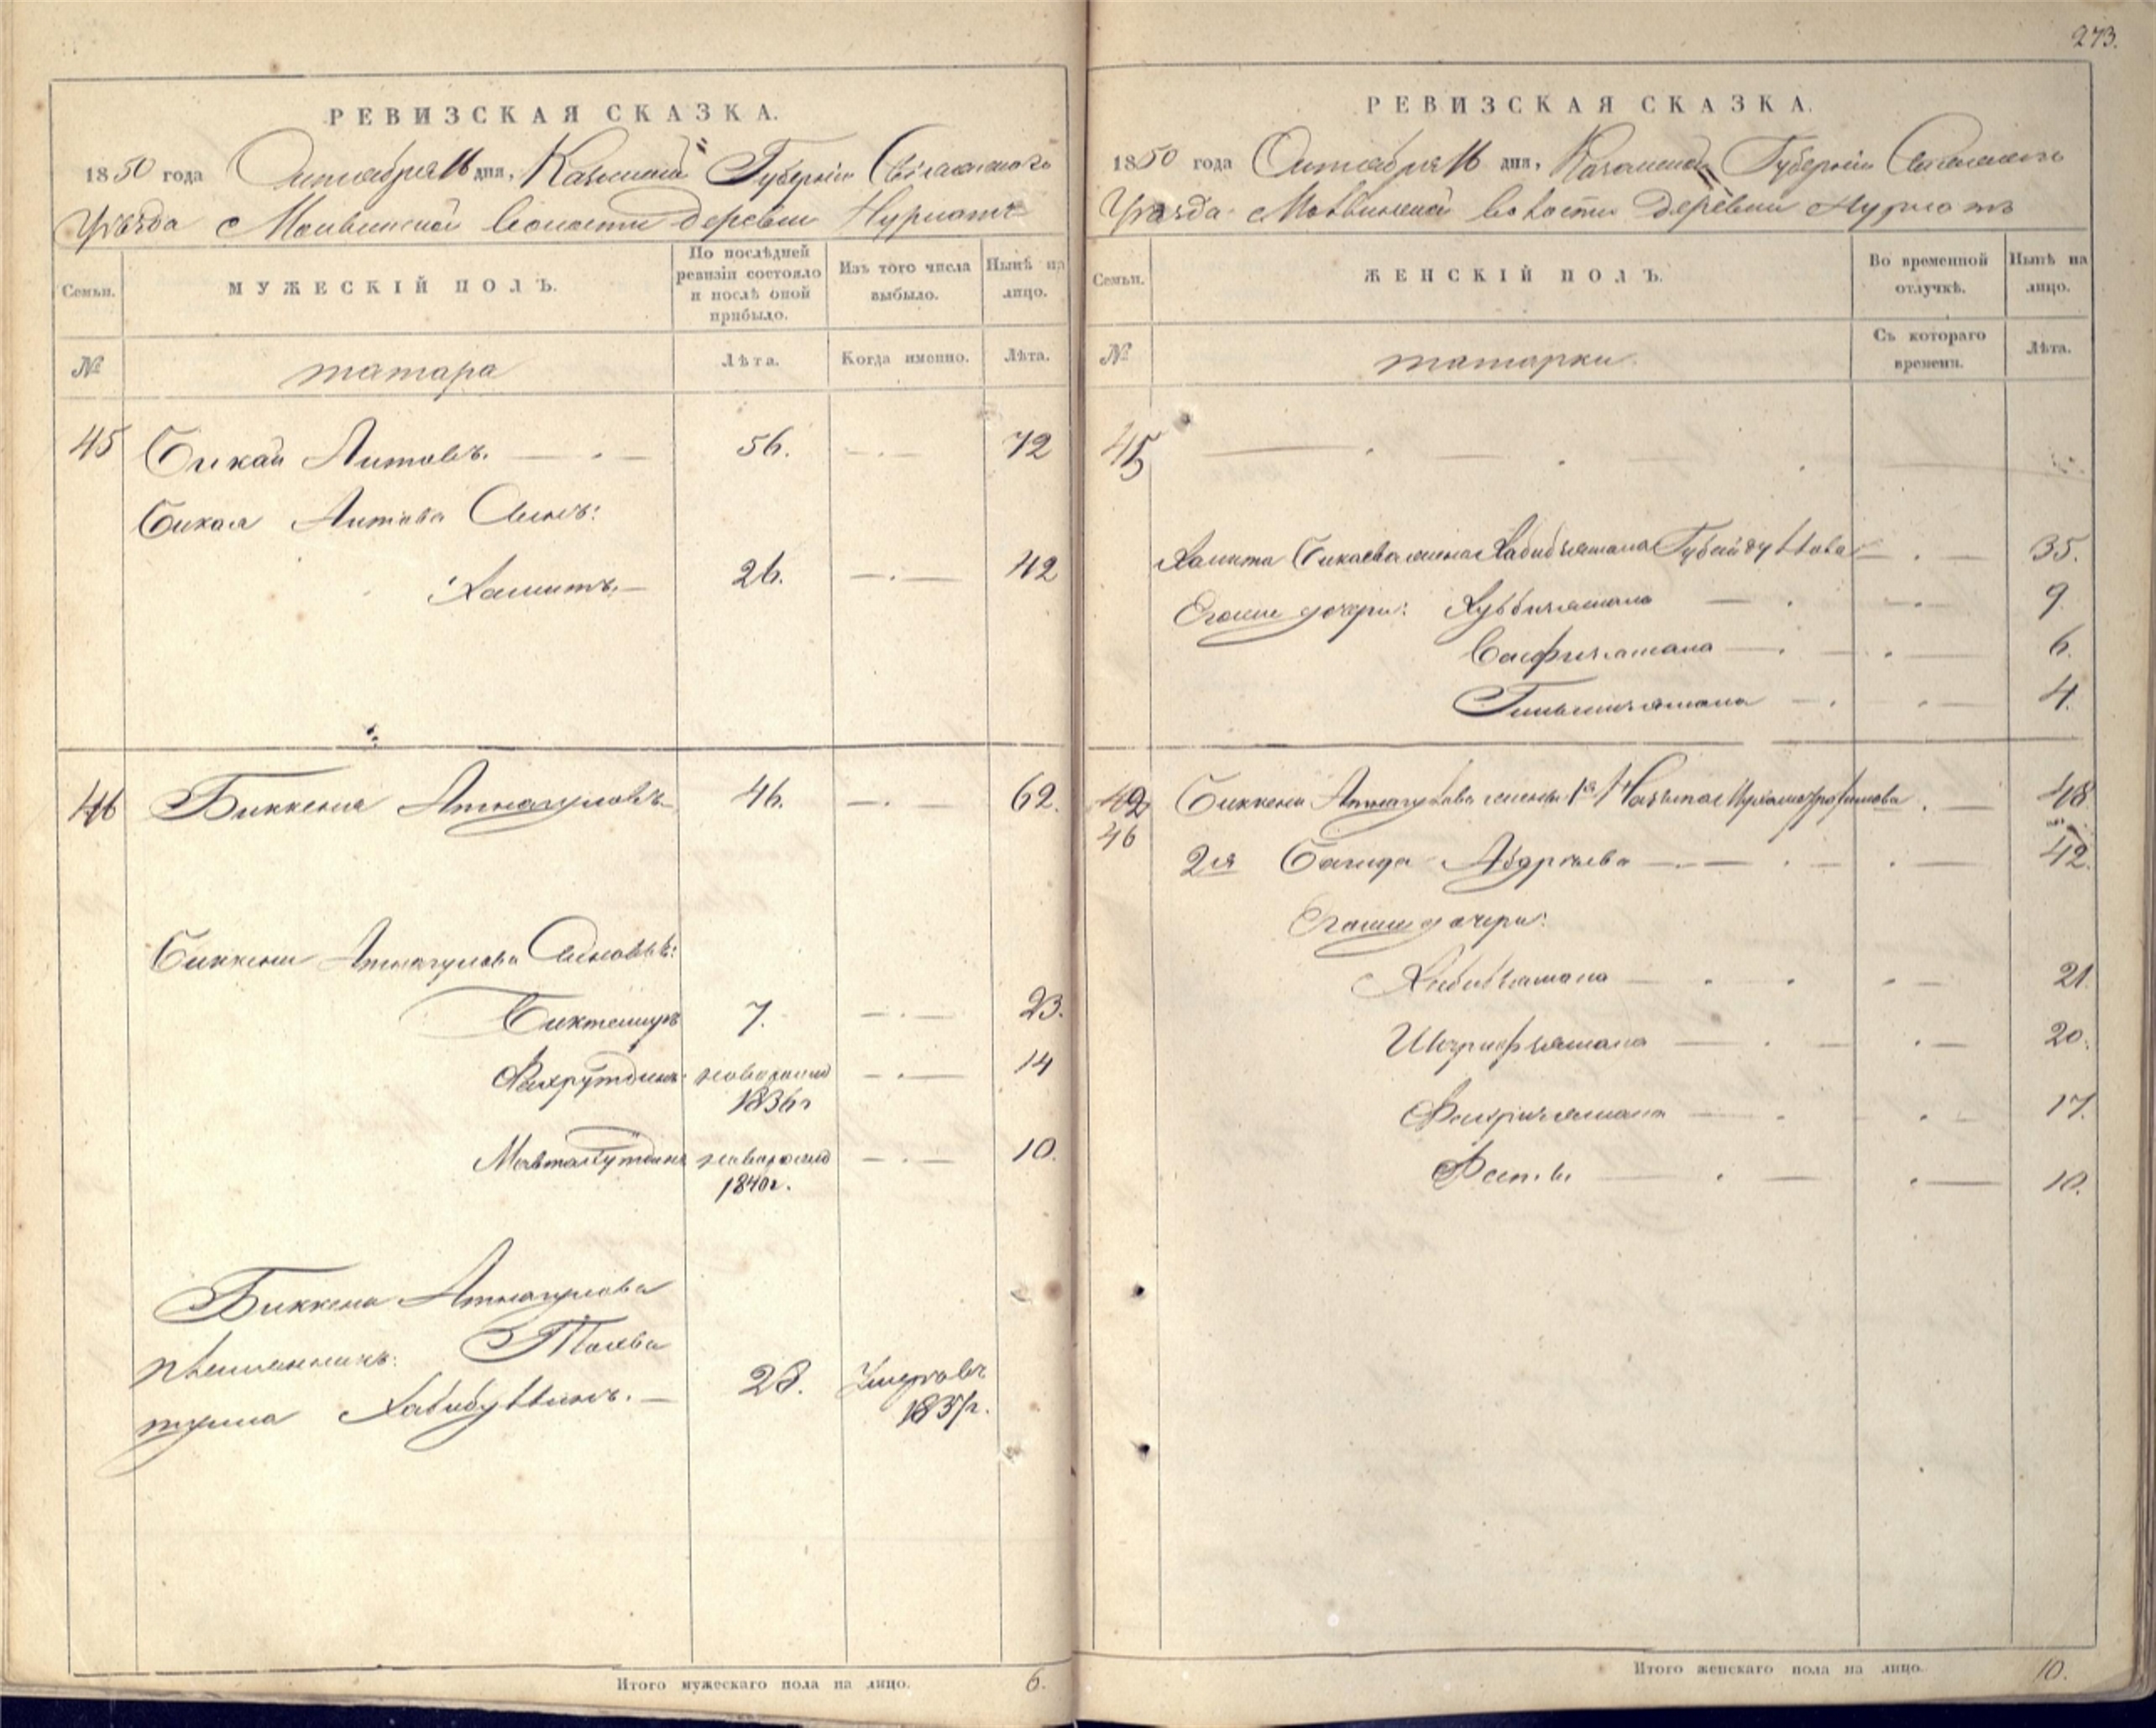 273.
РЕВИЗСКАЯ СКАЗКА.
1850 года Октября 16 дня, Казанской Губернии Свіяжскаго
Уѣзда Молвинской Волости деревни Нурлатъ
Семьи. МУЖЕСКІЙ ПОЛЪ. По послѣдней ревизіи состояло и послѣ оной прибыло. Изъ того числа выбыло. Нынѣ на лицо.
№ татара Лѣта. Когда именно. Лѣта.
45 Бикай Аитовъ. 56. 72
Бикая Аитова Сынъ:
Хамитъ. 26. 42
46 Биккеня Атнагуловъ 46. 62.
Биккени Атнагулова Сыновья:
Биктемиръ 7. 23.
Фахрутдинъ новорожд 1836г 14
Мавталутдинъ новорожд 1840г. 10.
Биккени Атнагулова
племянникъ:
Хабибуллинъ. 28. Умеръ въ 1837г.
Итого мужескаго пола на лицо. 6.
РЕВИЗСКАЯ СКАЗКА.
1850 года Октября 16 дня, Казанской Губерніи Свіяжскаго
Уѣзда Молвинской волости деревни Нурлатъ
Семьи. ЖЕНСКІЙ ПОЛЪ. Во временной отлучкѣ. Нынѣ на лицо.
№ татарки. Съ котораго времени. Лѣта.
45
Хамита Бикаева жена Хабибзямала Губайдуллова 35.
Егоже дочери: Хуббизямала 9.
Сафизямала 6.
4.
42 46 Биккени Атнагулова жены 1я 48
2я Сагида 42.
Егоже дочери:
Хабибзямала 21.
Шарифзямала 20.
Фахризямала 17.
10.
Итого женскаго пола на лицо. 10.